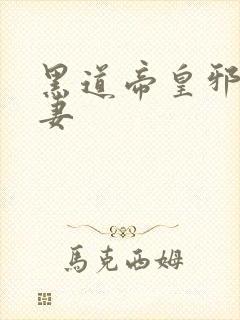 黑道帝皇邪
妻
馬克西姆